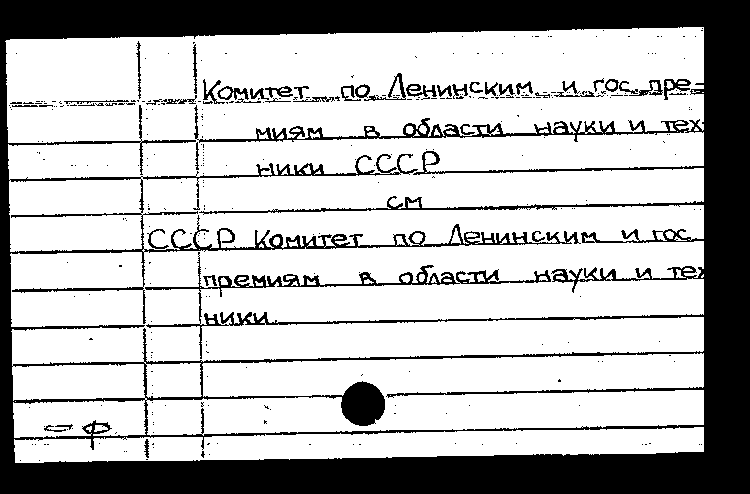 Комитет по Ленинским и гос. пре-
миям в области науки и тех-
ники СССР
см
СССР Комитет по Ленинским и гос.
премиям в области науки и тех
ники
= ф